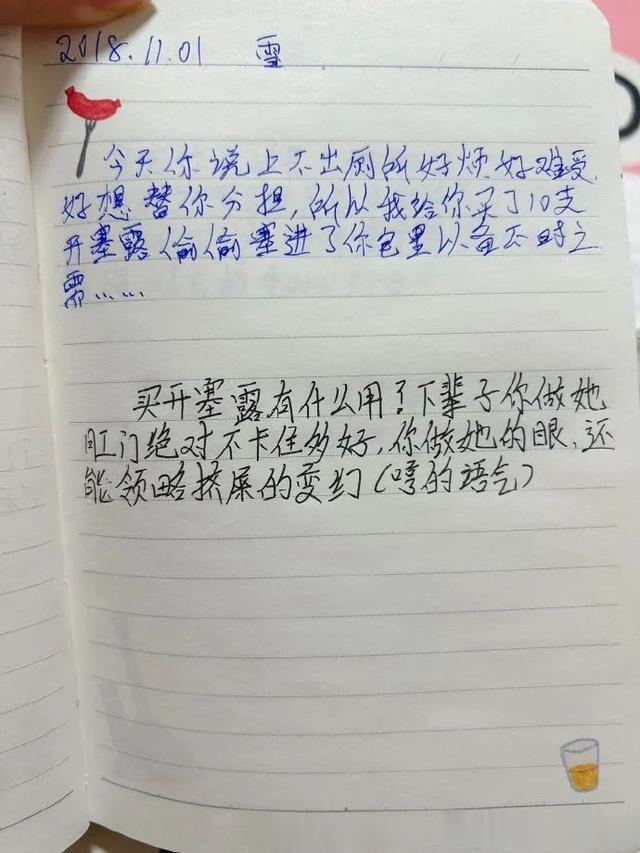 2018.11.01 雪
今天你说上不出厕所好烦好难受
好想替你分担,所以我给你买了10支
开塞露偷偷塞进了你包里以备不时之
需……
买开塞露有什么用?下辈子你做她
肛门绝对不卡住多好,你做她的眼,还
能领略挤屎的变幻(哼的语气)